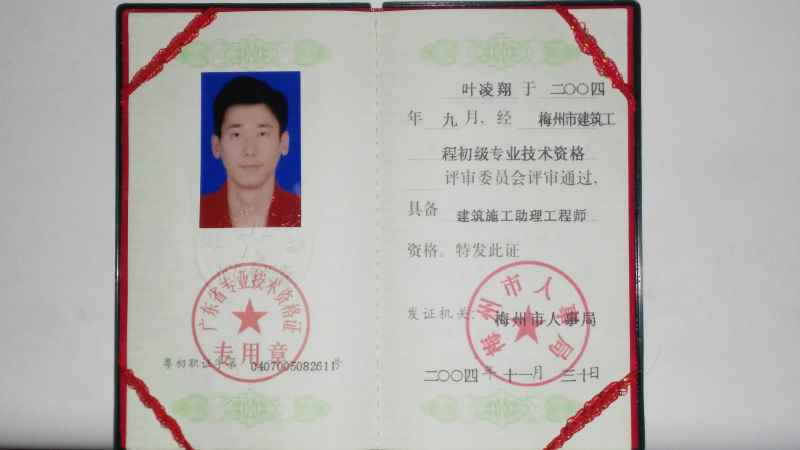 广东省专业技术资格证
专用章
粤初职证字第 0407005082611号
叶凌翔 于 二〇〇四
年 九 月，经 梅州市建筑工
程初级专业技术资格
评审委员会评审通过，
具备 建筑施工助理工程师
资格。特发此证
梅州市人事局
发证机关：梅州市人事局
二〇〇四年十一月三十日